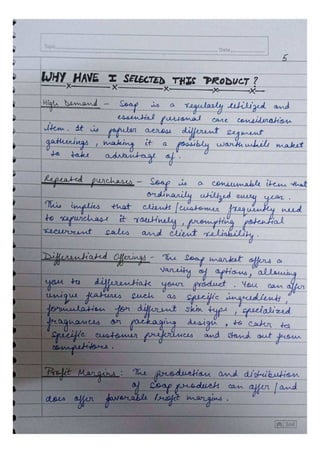 Topic
Date
5
WHY HAVE I SELECTED THIS PRODUCT?
High Demand - Soap is a regularly utilized and
essential personal care consideration
item. It is popular across different segment
gatherings, making it a possibly worthwhile market
to take advantage of.
Repeated purchases - Soap is a consumable item that
ordinarily utilized every year.
This implies that clients/customer frequently need
to repurchase it routinely, prompting potential
recurrent sales and client reliability.
Differentiated Offerings - The soap market offers a
variety of options, allowing
you to differentiate your product. You can offer
unique features such as specific ingredients,
formulation for different skin types, specialized
fragnances or packaging design, to cater to
specific customer preferences and stand out from
competitors.
Profit Margins: The production and distribution
of soap products can offer/and
does offer favorable Profit margins.